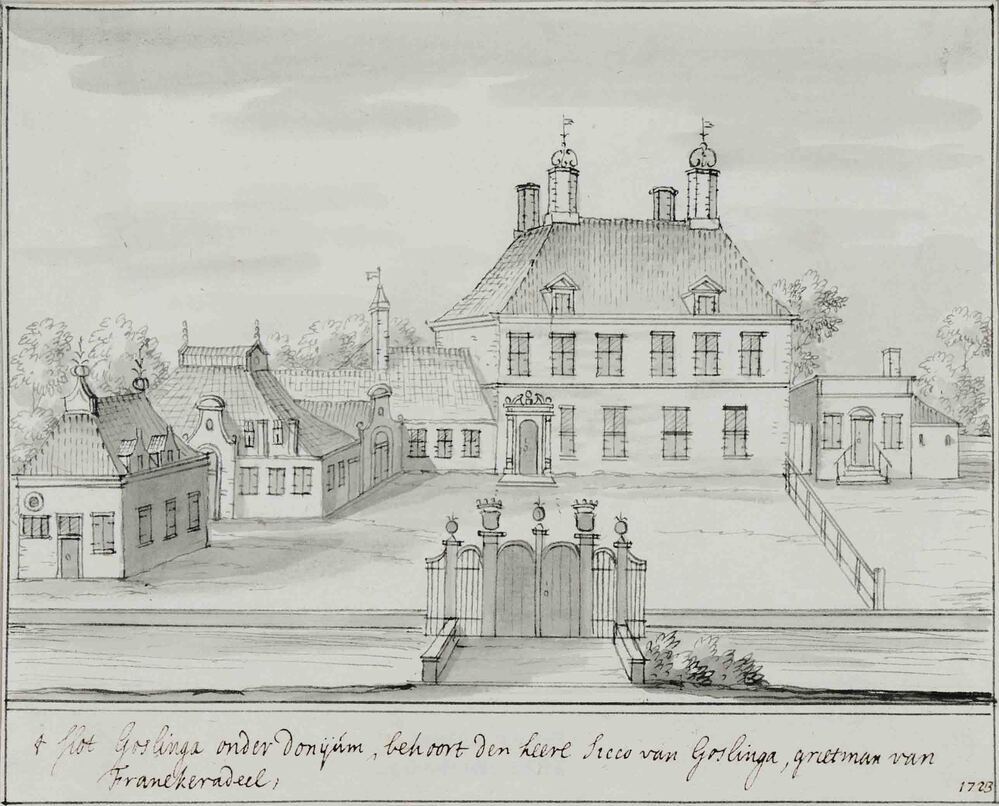 't slot Goslinga onder donijúm, behoort den heere Sicco van Goslinga, grietman van
Franekeradeel;
1723